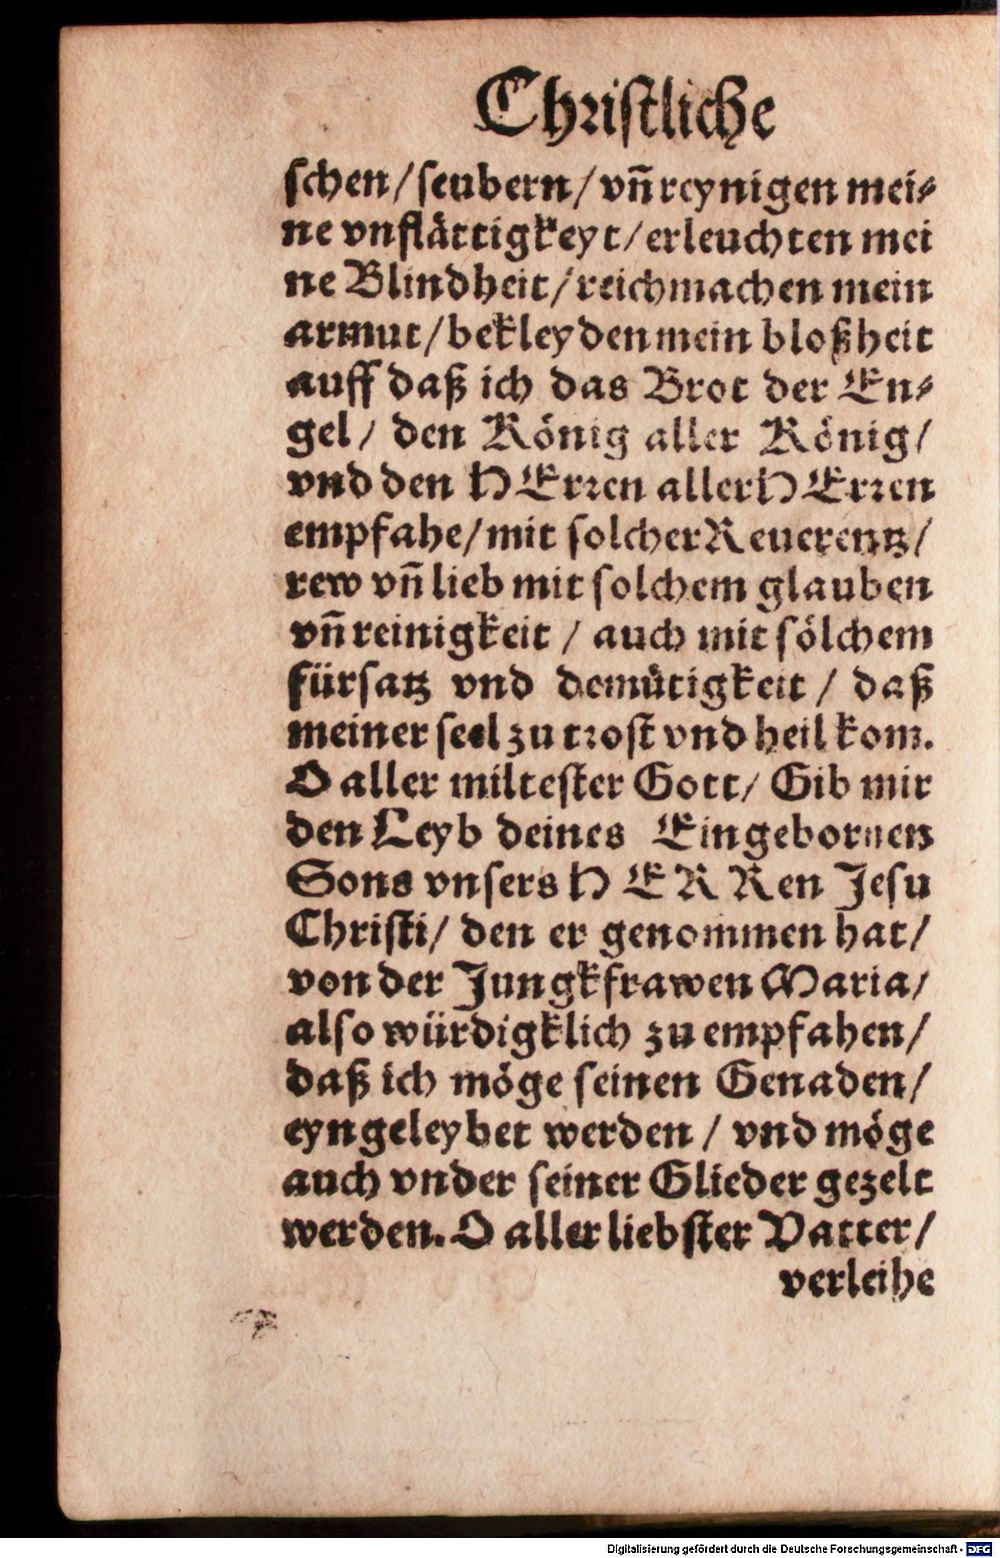 Christliche
schen/seubern/vn̄ reynigen mei⸗
ne vnflättigkeyt/erleuchten mei
ne Blindheit/reichmachen mein
armut/bekleyden mein bloßheit
auff daß ich das Brot der En⸗
gel/ den König aller König/
vnd den HErren aller HErren
empfahe/mit solcher Reuerentz/
rew vn̄ lieb mit solchem glauben
vn̄ reinigkeit / auch mit sölchem
fürsatz vnd demütigkeit / daß
meiner seel zu trost vnd heil kom.
O aller miltester Gott/ Gib mir
den Leyb deines Eingebornen
Sons vnsers HERRen Jesu
Christi/ den er genommen hat/
von der Jungkfrawen Maria/
also würdigklich zu empfahen/
daß ich möge seinen Genaden/
eyngeleybet werden / vnd möge
auch vnder seiner Glieder gezelt
werden. O aller liebster Vatter/
verleihe
Digitalisierung gefördert durch die Deutsche Forschungsgemeinschaft - DFG